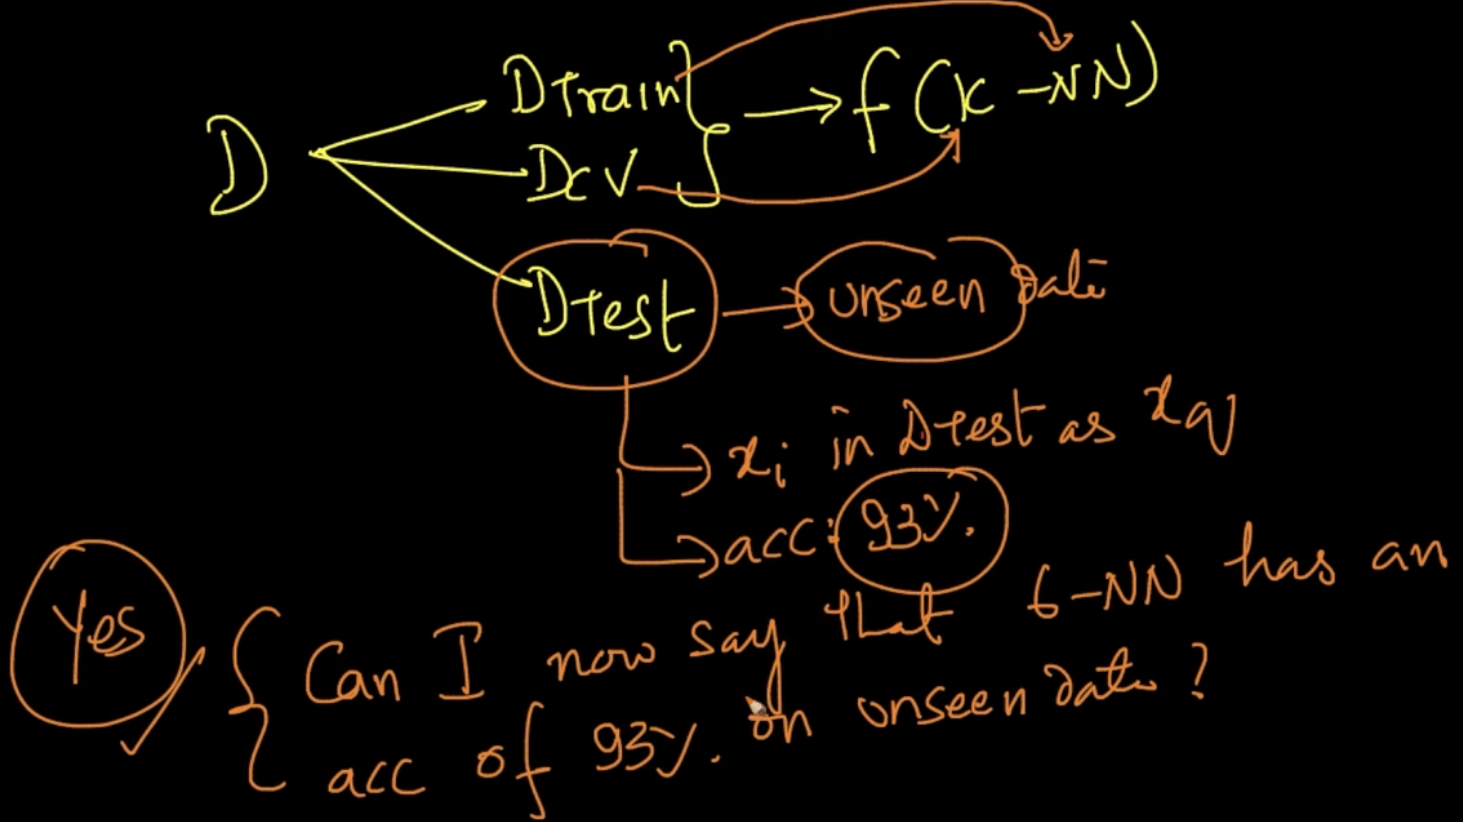 D
DTrain
DCV
→ f(K-NN)
DTest → unseen Data
→ xi in DTest as xq
→ acc: 93%.
Yes
Can I now say that 6-NN has an
acc of 93%. on unseen data?